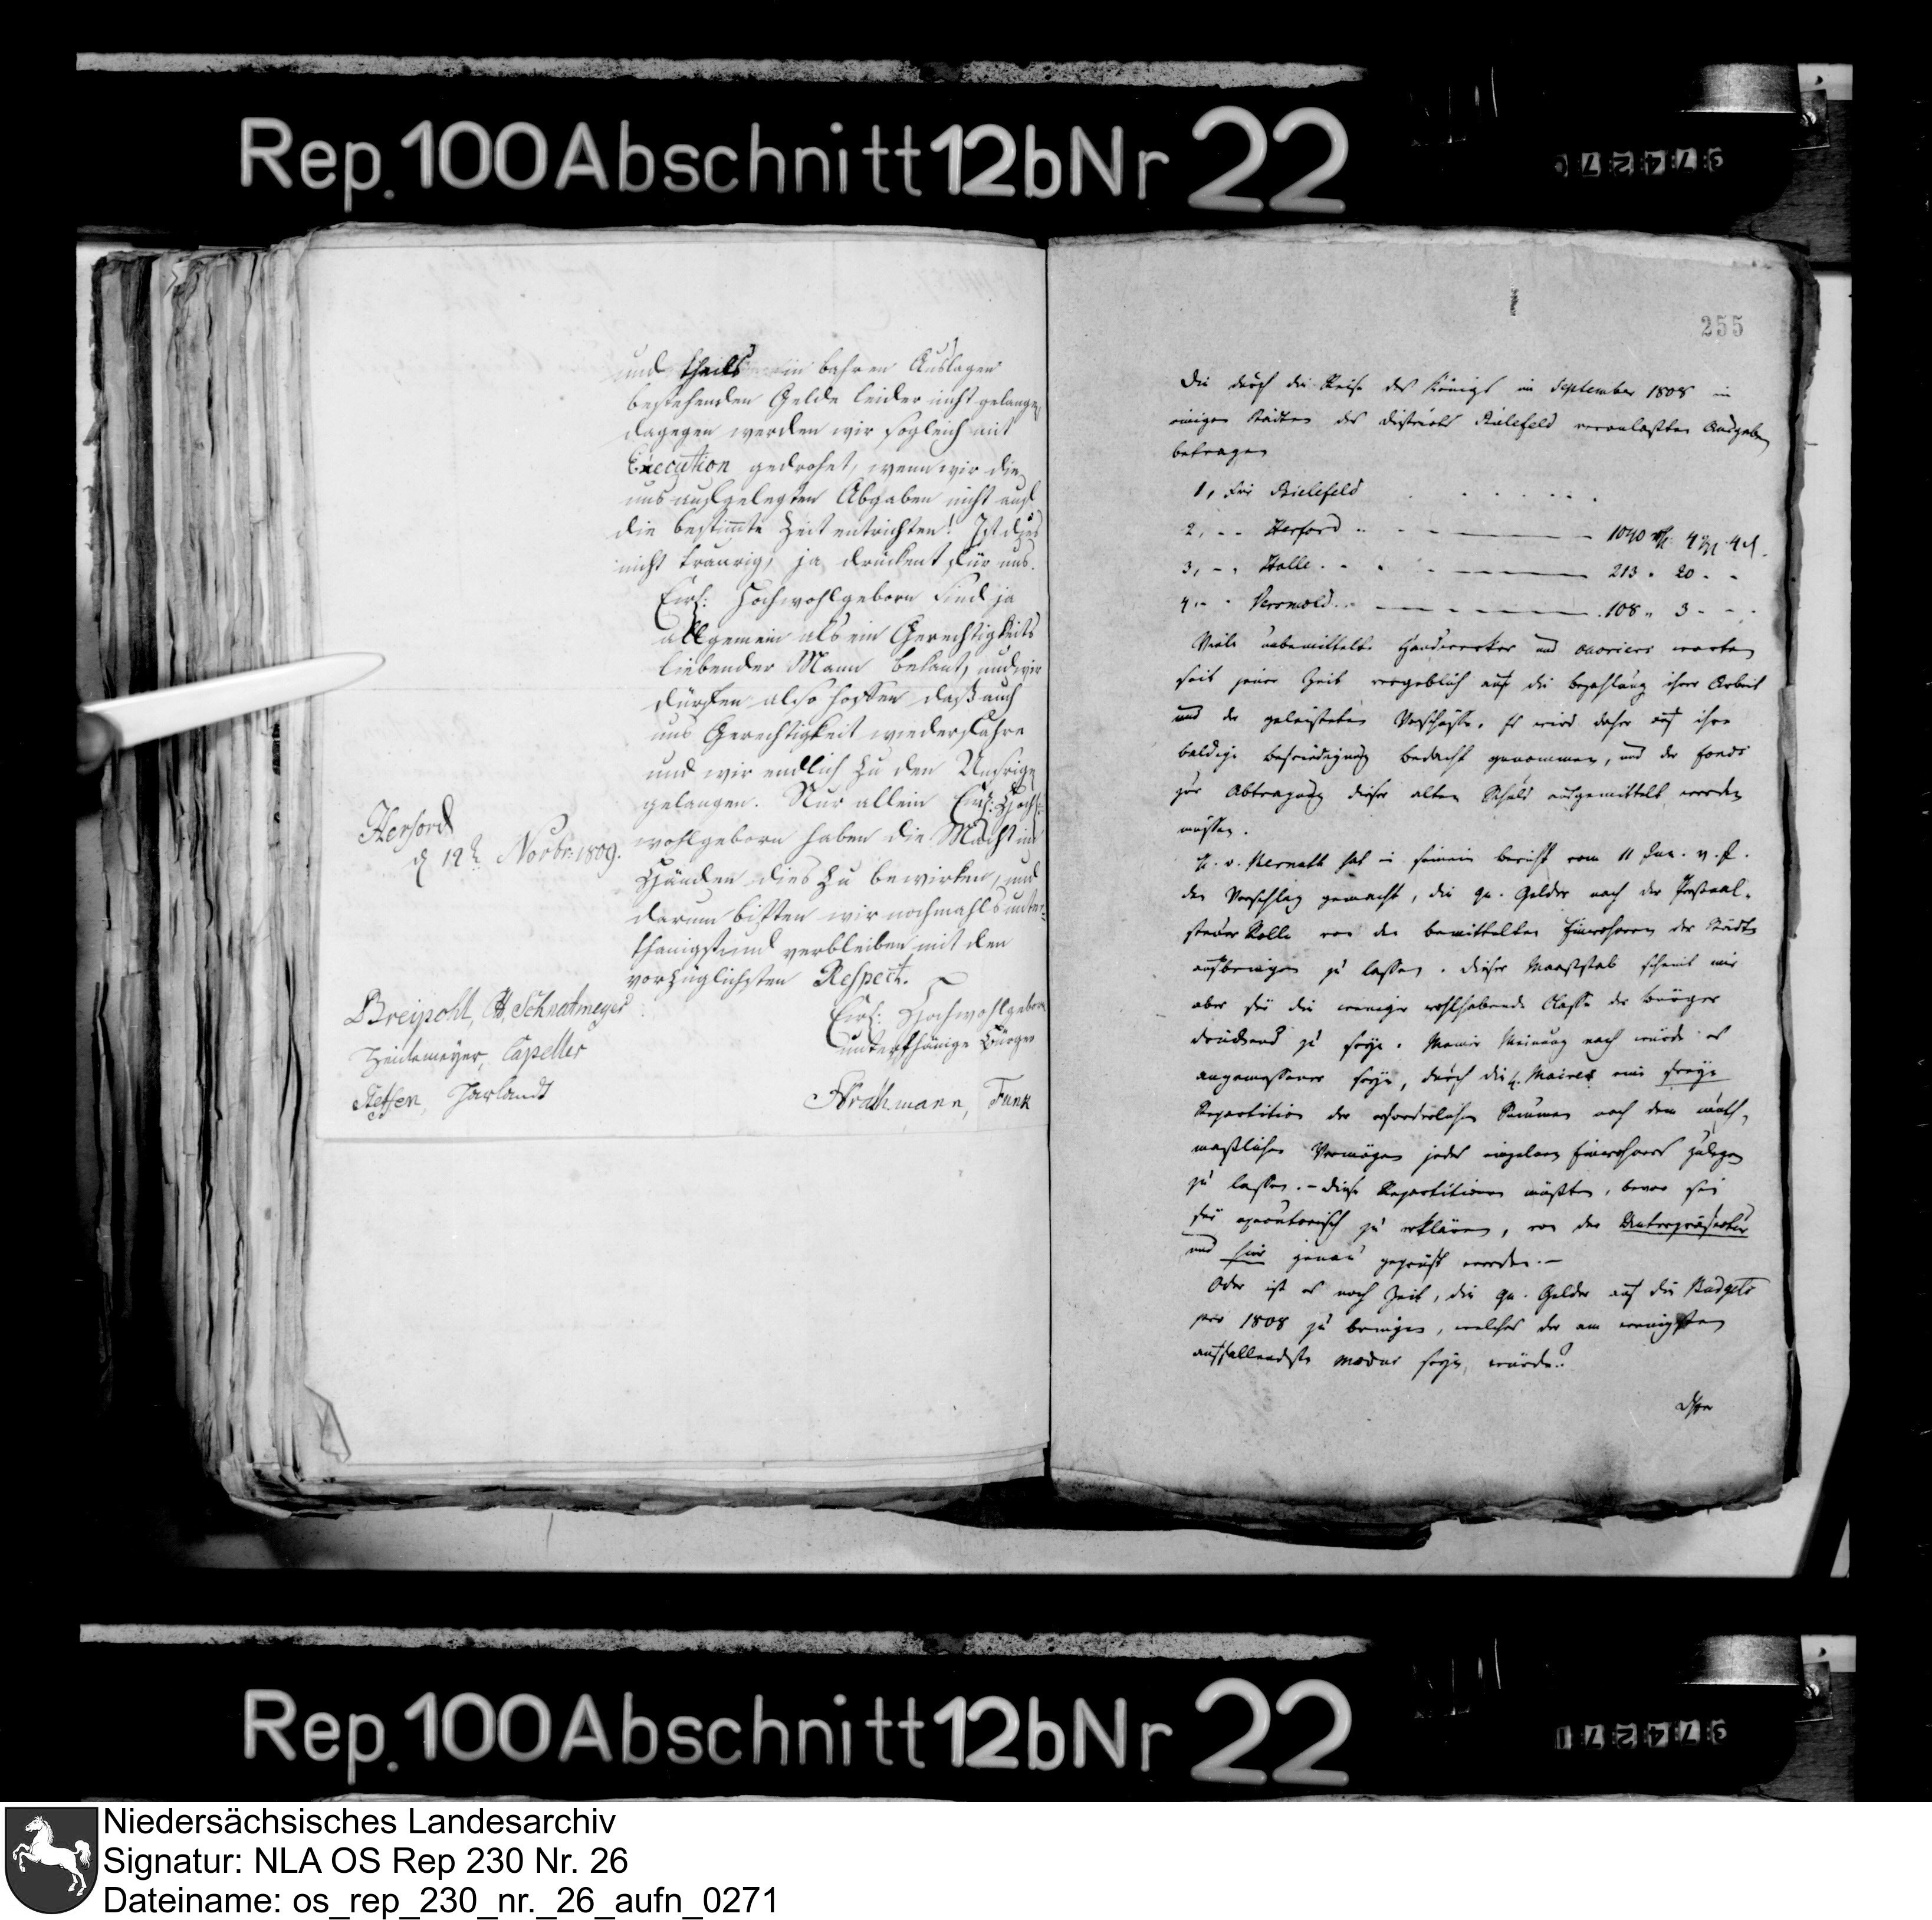 Rep. 100 Abschnitt 12b Nr 22
974270
und theils in bahren Auslagen
bestehenden Gelde leider nicht gelangen,
dagegen werden wir sogleich mit
Execution gedrohet, wenn wir die
uns aufgelegten Abgaben nicht auf
die bestimte Zeit entrichten! Ist dies
nicht traurig, ja drückent für uns.
Ew: Hochwohlgeborn sind ja
allgemein als ein Gerechtigkeits
liebender Mann bekant, und wir
dürfen also hoffen daß auch
uns Gerechtigkeit wiederfahre
und wir endlich zu den Unsrigen
gelangen. Nur allein Ew: Hoch-
wohlgeborn haben die Macht in
Händen dies zu bewirken, und
darum bitten wir nochmahls unter-
thänigst und verbleiben mit den
vorzüglichsten Respect.
Herford
d 12t Novbr: 1809.
Ew: Hochwohlgeborn
unterthänige Bürger
Breipohl, Schnatmeyer
Heidemeyer, Capeller
Steffen, Jarlandt
Strathmann, Funk
255
Die durch die Reise des Königs im September 1808 in
einigen Städten des Districts Bielefeld veranlaßten Ausgaben
betragen
1, für Bielefeld
2, - - Herford - - 1040 rt 4 ggr 4 d.
3, - - Halle - - 213 " 20 - -
4, - - Versmold - - 108 " 3 - -
Viele unbemittelte Handwerker und ouvriers warten
seit jener Zeit vergeblich auf die bezahlung ihrer Arbeit
und der geleisteten Vorschüsse. Es wird daher auf ihre
baldige befriedigung bedacht genommen, und der fonds
zur Abtragung dieser alten Schuld ausgemittelt werden
müssen.
H. v. Bernuth hat in seinem bericht vom 11 Jan. v. J.
den Vorschlag gemacht, die qu. Gelder nach der Personal-
steuer Rolle von den bemittelten Einwohnern der Städte
aufbringen zu lassen. Dieser Maasstab scheint mir
aber für die weniger wohlhabende Classe der bürger
drückend zu seyn. Meiner Meinung nach würde es
angemessener seyn, durch die H. Maires eine freye
Repartition der erforderlichen Summen nach dem muth-
maßlichen Vermögen jedes einzelnen Einwohners zulegen
zu lassen. - Diese Repartitionen müßten, bevor sie
für executorisch zu erklären, von der Unterpräfectur
und hier genau geprüft werden. -
Oder ist es noch Zeit, die qu. Gelder auf die Budgets
pro 1808 zu bringen, welches der am wenigsten
auffallendste modus seyn würde?
Rep. 100 Abschnitt 12b Nr 22
974271
Niedersächsisches Landesarchiv
Signatur: NLA OS Rep 230 Nr. 26
Dateiname: os_rep_230_nr._26_aufn_0271